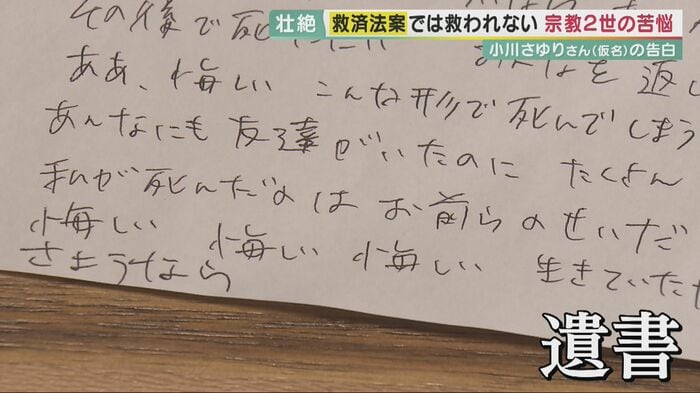 壮絶 救済法案では救われない 宗教2世の苦悩
小川さゆりさん(仮名)の告白
その後で死に
を返し
ああ、悔しい こんな形で死んでしまう
あんなにも友達がいたのに たくさん
私が死んだのはお前らのせいだ
悔しい 悔しい 悔しい 生きていたか
さようなら
遺書